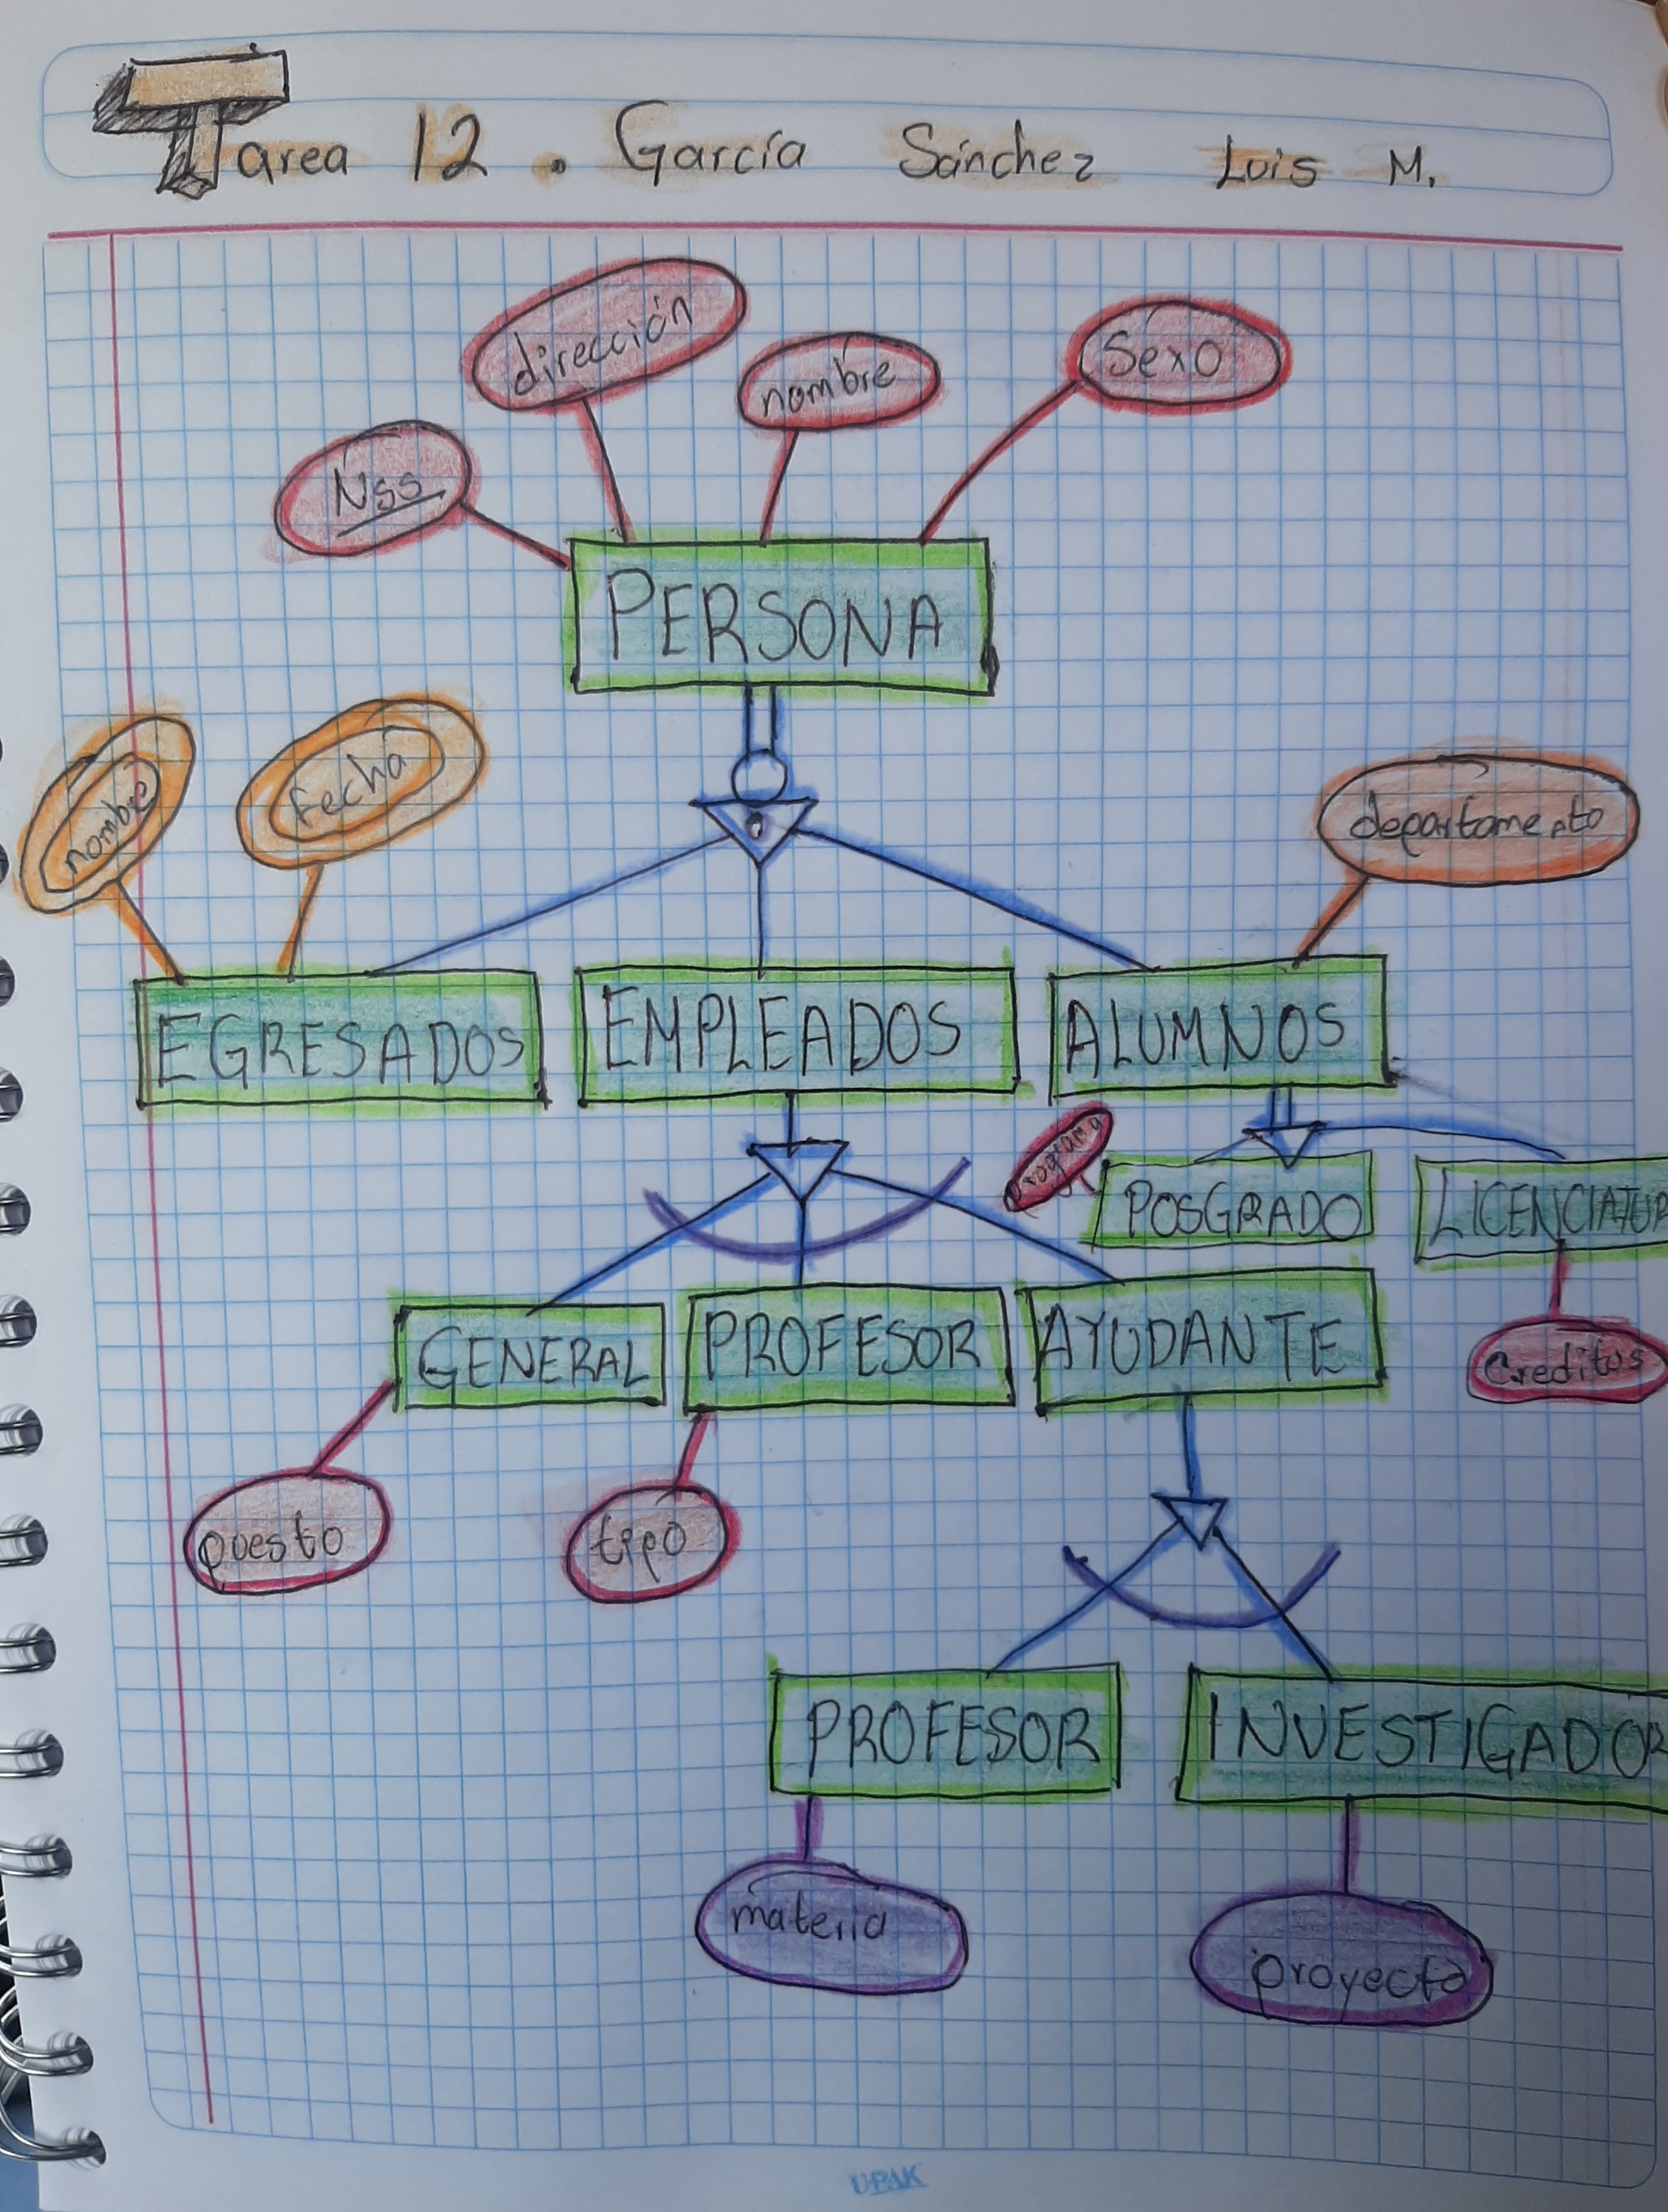 Tarea 12. García Sánchez Luis M.
dirección
nombre
Sexo
Nss
PERSONA
nombre
Fecha
departamento
EGRESADOS
EMPLEADOS
ALUMNOS
programa
POSGRADO
LICENCIATUR
GENERAL
PROFESOR
AYUDANTE
Creditos
puesto
tipo
PROFESOR
INVESTIGADOR
materia
proyecto
UPAK